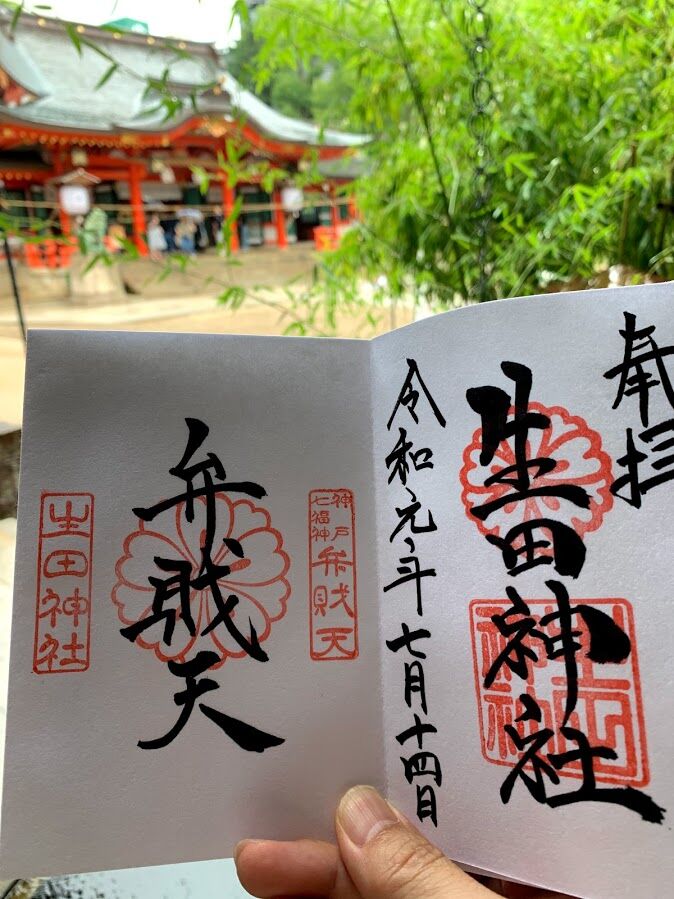 奉拝
生田神社
令和元年七月十四日
神戸
七福神
弁財天
弁財天
生田神社